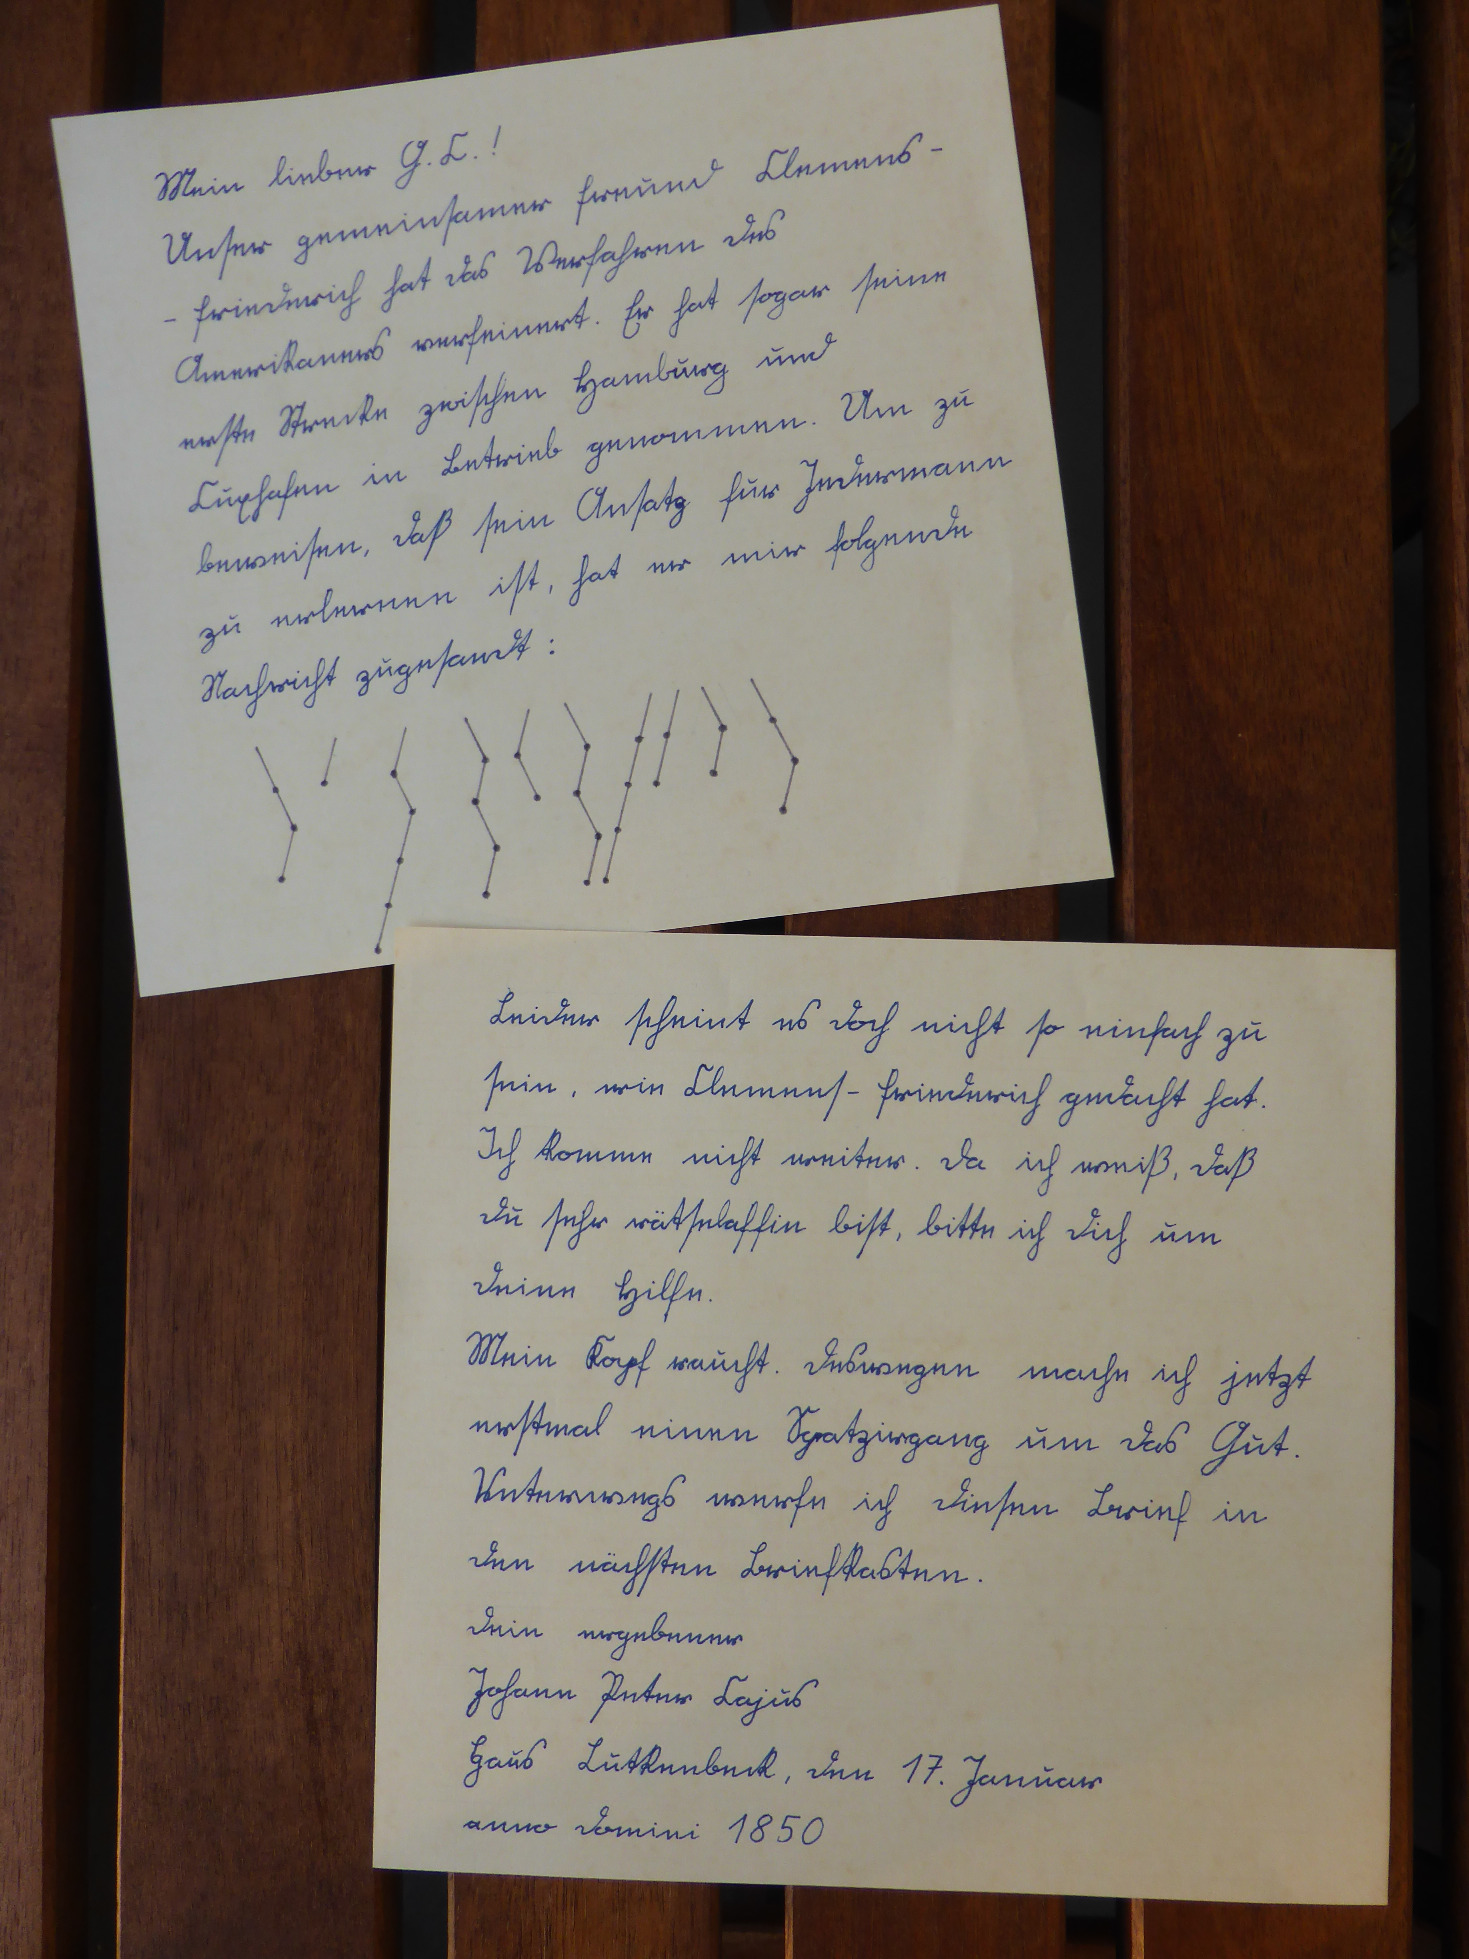 Mein lieber G. C.!
Unser gemeinsamer Freund Clemens-
- Friederich hat das Verfahren des
Amerikaners verfeinert. Er hat sogar seine
erste Strecke zwischen Hamburg und
Cuxhafen in Betrieb genommen. Um zu
beweisen, daß sein Ansatz für Jedermann
zu erlernen ist, hat er mir folgende
Nachricht zugesandt:
Leider scheint es doch nicht so einfach zu
sein, wie Clemens-Friederich gedacht hat.
Ich komme nicht weiter. Da ich weiß, daß
Du sehr rätselaffin bist, bitte ich Dich um
Deine Hilfe.
Mein Kopf raucht. Deswegen mache ich jetzt
erstmal einen Spatzirgang um das Gut.
Unterwegs werfe ich diesen Brief in
den nächsten Briefkasten.
Dein ergebener
Johann Peter Cajus
Haus Lütkenbeck, den 17. Januar
anno domini 1850